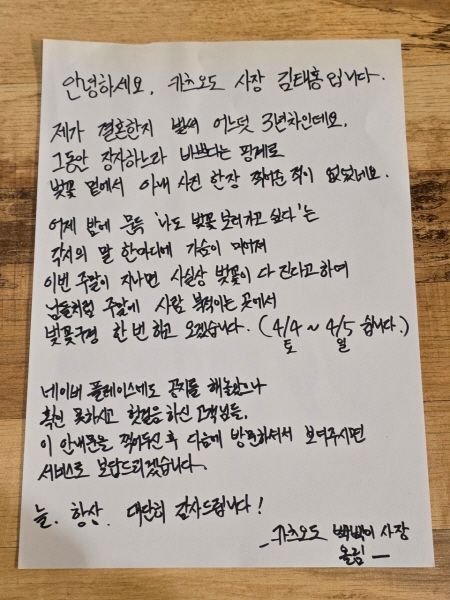 안녕하세요, 카츠오도 사장 김태홍입니다.
제가 결혼한지 벌써 어느덧 3년차인데요,
그동안 장사하느라 바쁘다는 핑계로
벚꽃 밑에서 아내 사진 한장 찍어준 적이 없었네요.
어제 밤에 문득 '나도 벚꽃 보러가고 싶다'는
각시의 말 한마디에 가슴이 미어져
이번 주말이 지나면 사실상 벚꽃이 다 진다고 하여
남들처럼 주말에 사람 북적이는 곳에서
벚꽃구경 한 번 하고 오겠습니다. (4/4 ~ 4/5 쉽니다.)
토 일
네이버 플레이스에도 공지를 해놓았으나
확인 못하시고 헛걸음 하신 고객님들,
이 안내문을 찍어두신 후 다음에 방문하셔서 보여주시면
서비스로 보답드리겠습니다.
늘, 항상, 대단히 감사드립니다!
- 카츠오도 빡빡이 사장
올림 -